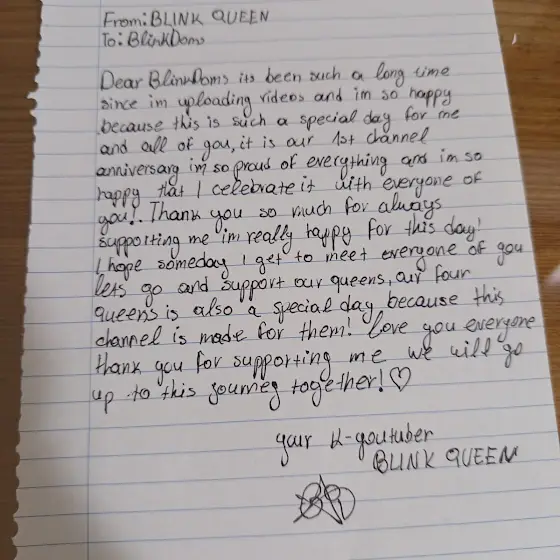 From: BLINK QUEEN
To: BlinkDoms
Dear BlinkDoms its been such a long time
since im uploading videos and im so happy
because this is such a special day for me
and all of you, it is our 1st channel
anniversary im so proud of everything and im so
happy that I celebrate it with everyone of
you!. Thank you so much for always
supporting me im really happy for this day!
I hope someday I get to meet everyone of you
lets go and support our queens, our four
queens is also a special day because this
channel is made for them! love you everyone
thank you for supporting me we will go
up to this journey together!♡
your K-youtuber
BLINK QUEEN